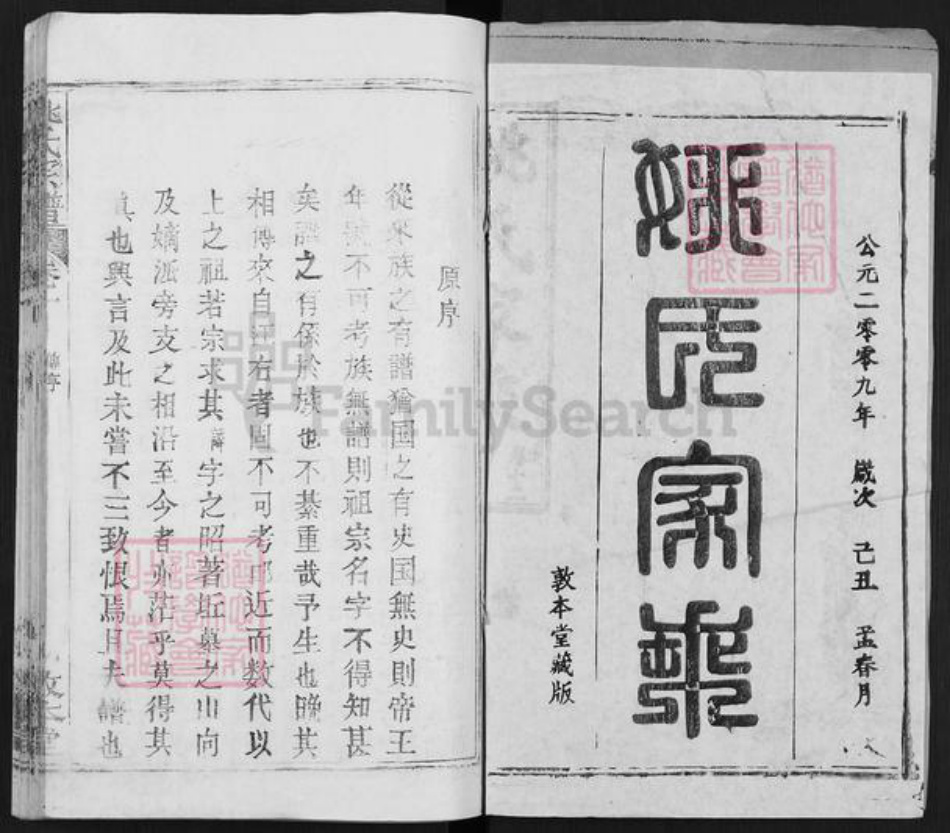 公元二零零九年 歲次 己丑 孟春月
姚氏家乘
敦本堂藏版
原序
從來族之有譜猶国之有史国無史則帝王
年號不可考族無譜則祖宗名字不得知甚
矣譜之有係於族也不綦重哉予生也晚其
相傳來自江右者固不可考即近而数代以
上之祖若宗求其諱字之昭著坵墓之山向
及嫡派旁支之相沿至今者亦茫乎莫得其
真也興言及此未嘗不三致恨焉且夫譜也
氏宗譜
FamilySearch